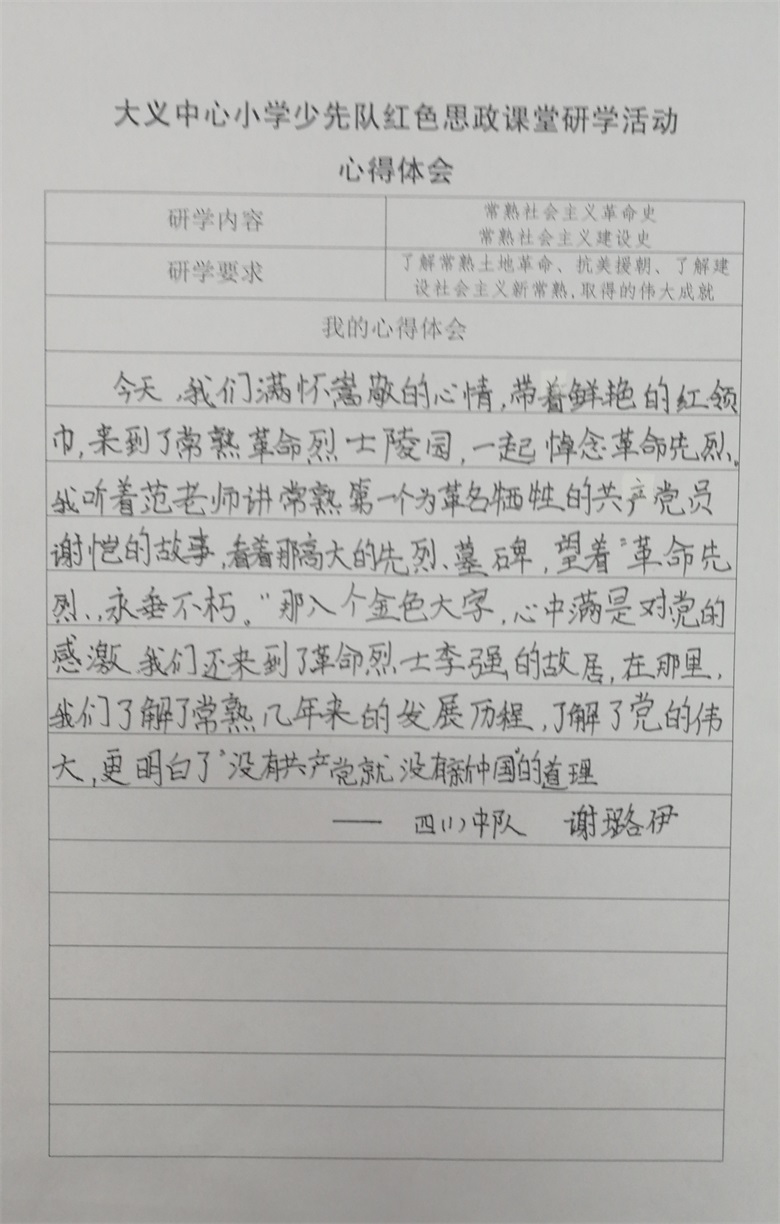 大义中心小学少先队红色思政课堂研学活动
心得体会
研学内容
常熟社会主义革命史
常熟社会主义建设史
研学要求
了解常熟土地革命、抗美援朝、了解建
设社会主义新常熟,取得的伟大成就
我的心得体会
今天,我们满怀嵩敬的心情,带着鲜艳的红领
巾,来到了常熟革命烈士陵园,一起悼念革命先烈、
我听着范老师讲常熟第一个为革名牺牲的共产党员
谢恺的故事,看着那高大的先烈、墓碑,望着"革命先
烈、永垂不朽。"那入个金色大字,心中满是对党的
感激 我们还来到了革命烈士李强的故居,在那里,
我们了解了常熟几年来的发展历程,了解了党的伟
大,更明白了"没有共产党就没有新中国"的道理
—— 四(1)中队 谢璐伊